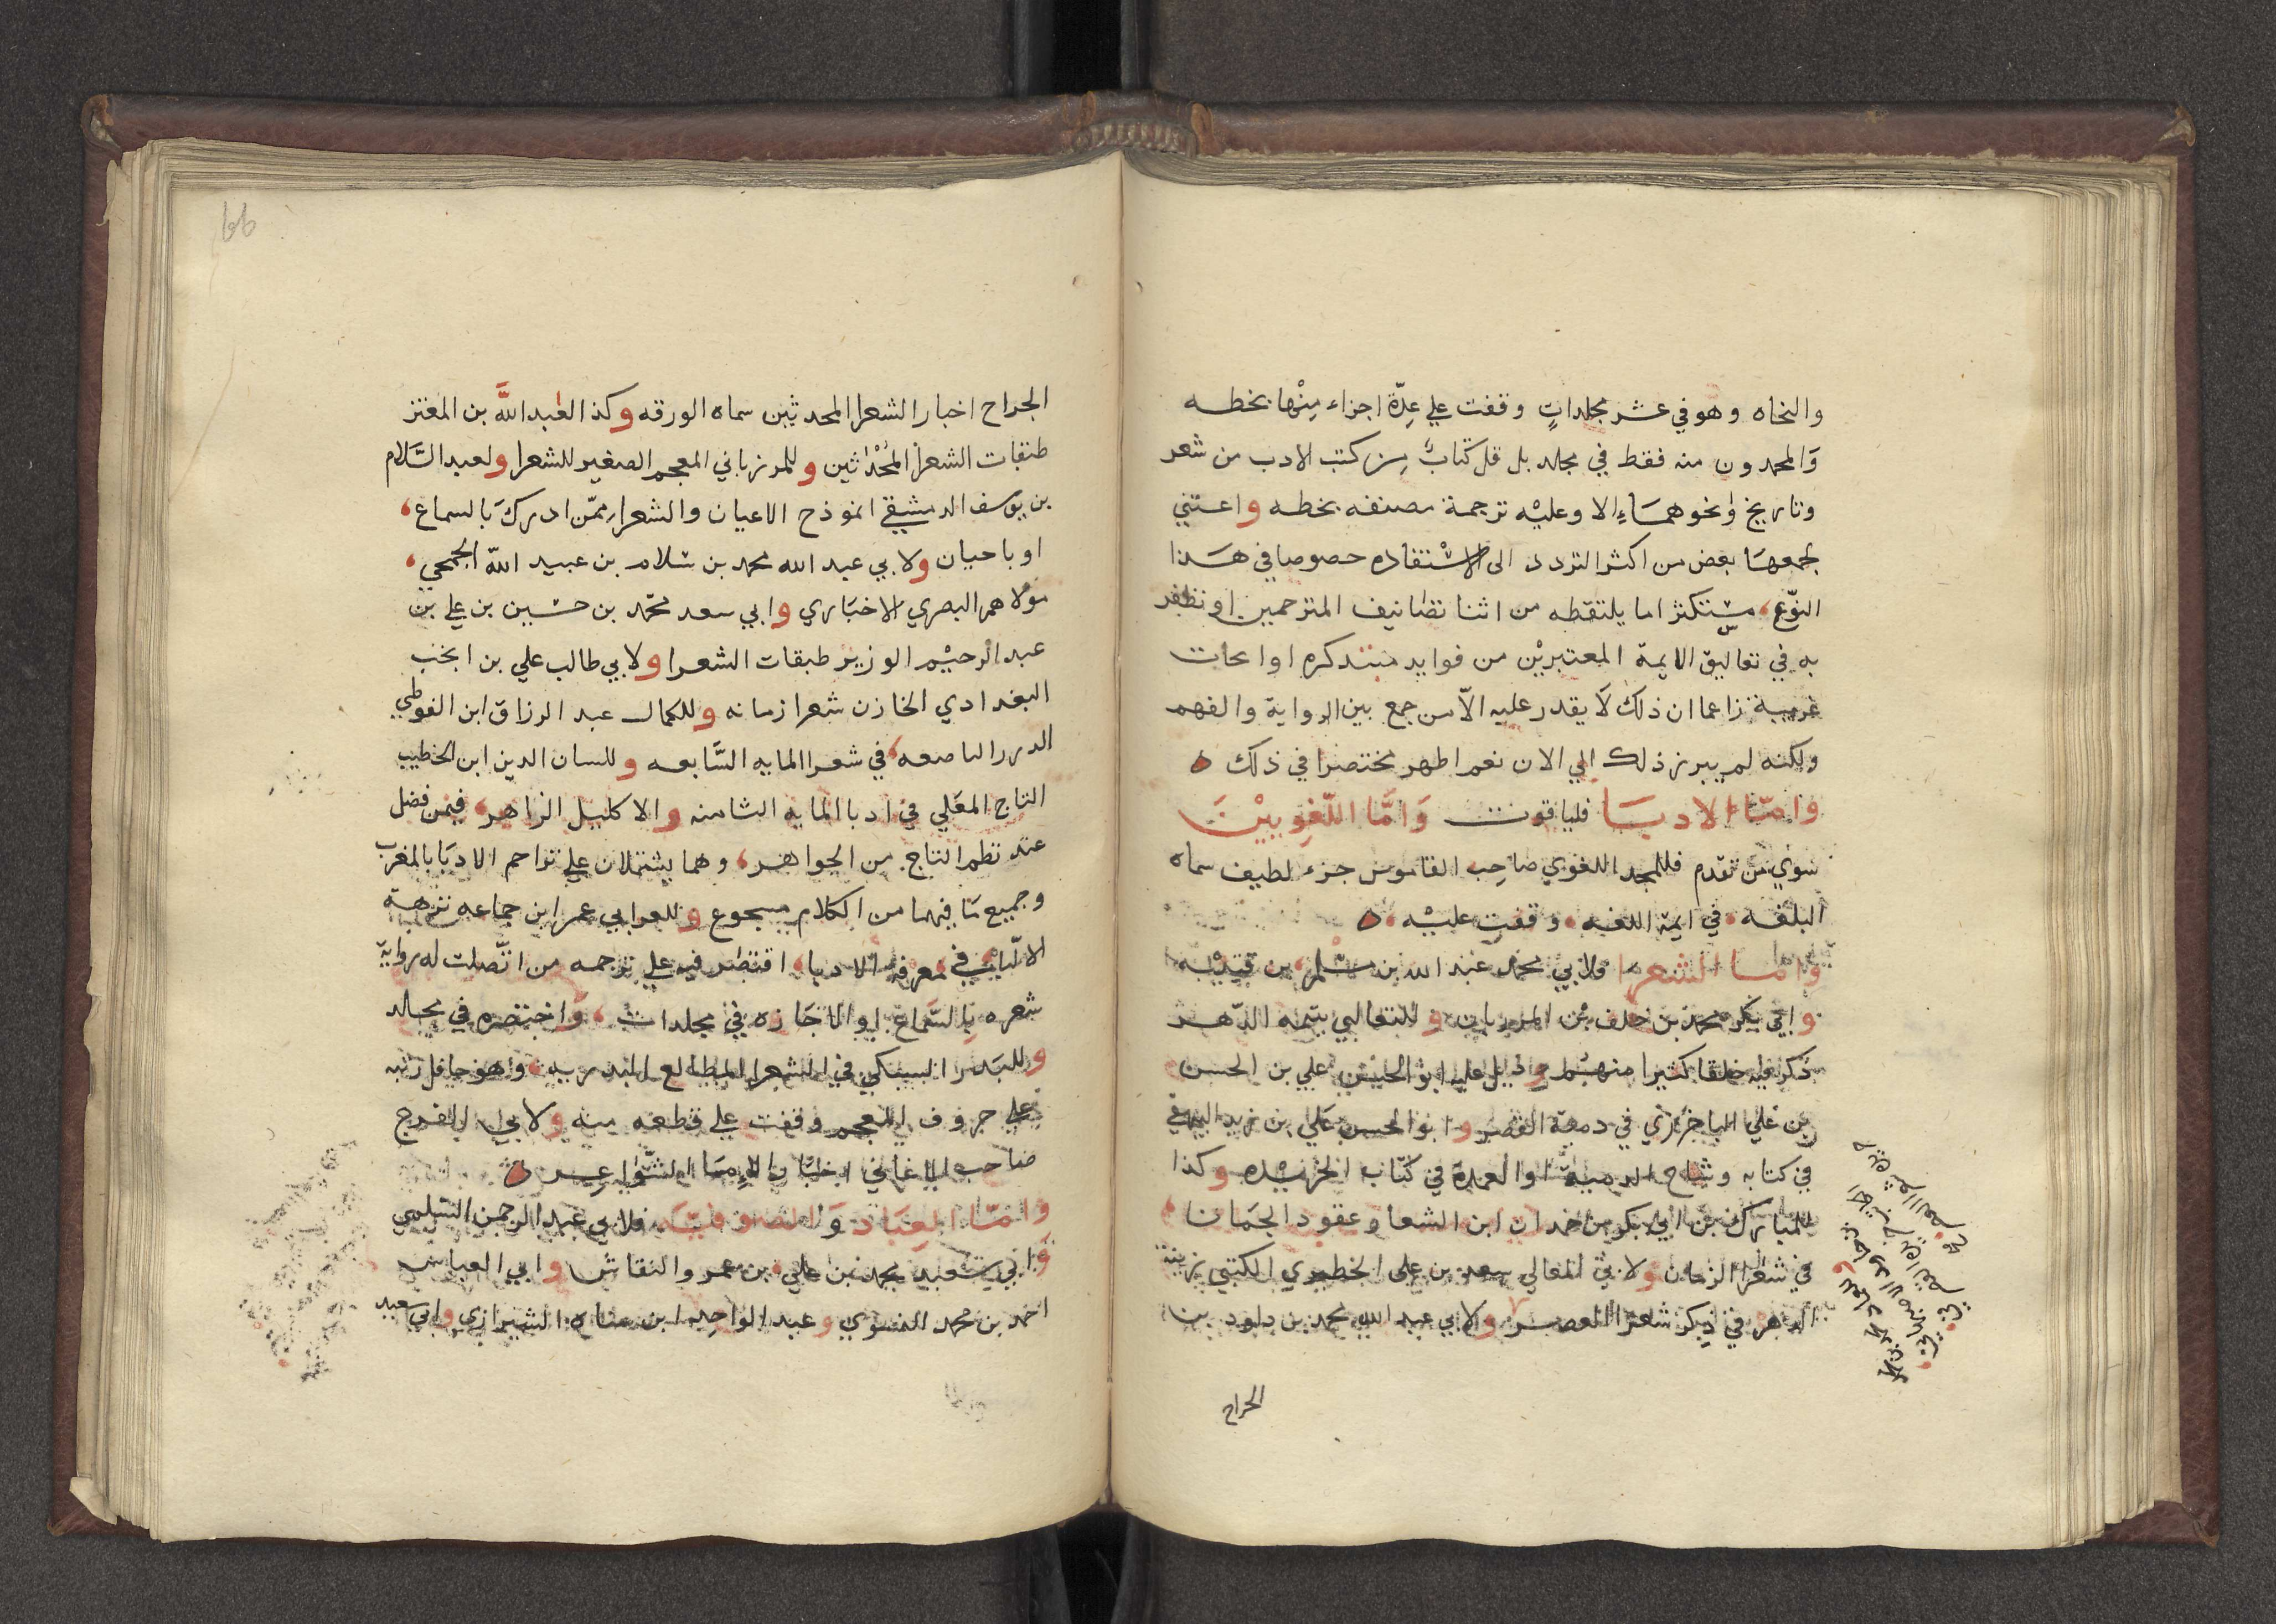 والنحاه وهو في عشر مجلداتٍ وقفت علي عِدّة اجزاء مِنْها بخطه
وَالمحمدون منه فقط في مجلد بل قل كتابٌ مِن كتب الادب من شعر
وتاريخ وٰنحوهمَاءِ الا وعليْه ترجمة مصنفه بخطه واعتني
بجمعهَا بعض من اكثر التردد الى للاسْتفاده خصوصا في هَذا
النوّع، مسْتكثرا مايلتقطه من اثنا تصَانيف المترجمين او تظفر
به في تعاليق الايمة المعتبريْن من فوايد مستذكره او ابحاث
غريبة زاعما ان ذلك لَا يقدر عليه الاّ من جمع بين الرواية والفهم
ولكنه لم يبرز ذلك الي الان نعم اظهر مختصرا في ذلك ه
وَامّا الادبَا فلياقوت وَامَّا اللّغوِييْنَ
سوي من تقدم فللمجد اللغوي صَاحِب القاموس جزء لطيف سماه
البلغه في ايمة اللغه وقفت عليْه ه
وامّا الشعرا فلابي محمد عبد الله بن مسْلم بن قتيْبه
وابي بكر محمد بن خلف بْن المرزبان وللثعالبي يتيمة الدّهر
ذكر فيه خلقا كثيرا منهمْ وذيل عليه ابو الحسن علي بن الحسن
بن علي الباخرزي في دمية القصر وابو الحسن علي بن زيد البيهقي
في كتابه وشاح الدمية والعماد في كتاب الخريْده وكذا
للمبارك بن ابي بكر بن حمدان ابن الشعا وعقود الجمَانا
في شعرا الزمان ولابي المعالي سعد بن علي الحظيري الكتبي زينة
الدهر في ذِكر شعرا العصر ولابي عبد الله محمد بن داود بن
الجراح
الجراح اخبار الشعرا المحدثين سماه الورقه وكذا لعبد اللَّه بن المعتز
طبقات الشعرا المُحْدَثين وللمرزباني المعجم الصغير للشعرا ولعبد السَّلام
بن يوسف الدمشقي انموذح الاعيان والشعرا مِمّن ادركَ بالسماع،
او باحيان ولابي عبد الله محمد بن سَلام بن عبيد اللّه الجمحي،
مَولاهم البصري الاخبَاري وابي سعد محَمد بن حسَين بن علي بن
عبد الرحيْم الوزير طبقات الشعرا ولابي طالب علي بن انجب
البغدادي الخازن شعرا زمانه وللكمال عبد الرزاق ابن الفوطي
الدرر الناصعه، في شعرا المايه السَّابعه وللسان الدين ابن الخطيب
التاج المعَلي في ادبا المايه الثامنه والاكليل الزاهر، فيمن فضل
عند نظم التاج من الجواهر، وهما يشتملان علي تراجم الادبَا بالمغرب
وجميع مَا فيهما من الكلام مسجوع وللعز ابي عمر ابن جماعه نزهة
الالبّاء في معرفة الادبا، اقتصَر فيه علي ترجمه من اتَّصلت له رواية
شعره بِالسَّماع او الاجَازه في مجلدات، وَاختصره في مجلد
وللبَدر البشتكي في الشعرا المطالع البدريه، وهو حافل رتبه
علي حروف المعجم وقفت علي قطعه منه ولابي الفرج
صاحب الاغاني اخبَار الإمَا الشّواعِر ه
وَامّا العِبَاد وَالصوفيّه فلابي عبد الرحمن السّلمي
وَابي سَعيد محمد بن علي بن عمرو النقاش وابي العباس
احمد بن محمد النسوي وعبد الواحِد ابن شاه الشيرازي وابي سعيد